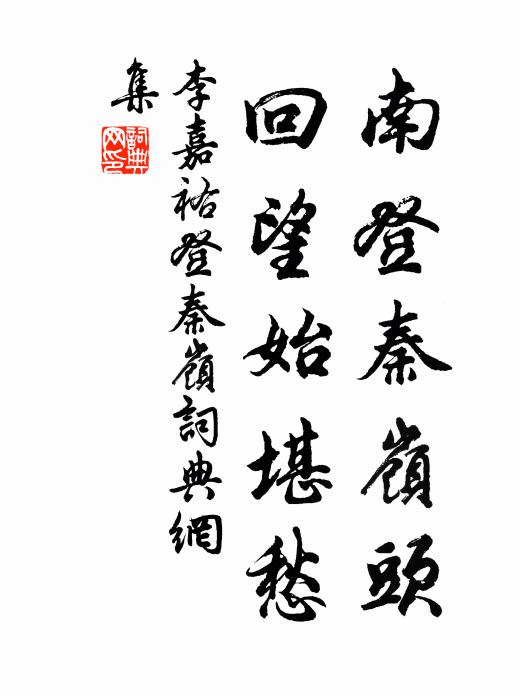 南登秦嶺頭
回望始堪愁
李嘉祐登秦嶺詞典網
集
詞典
网印